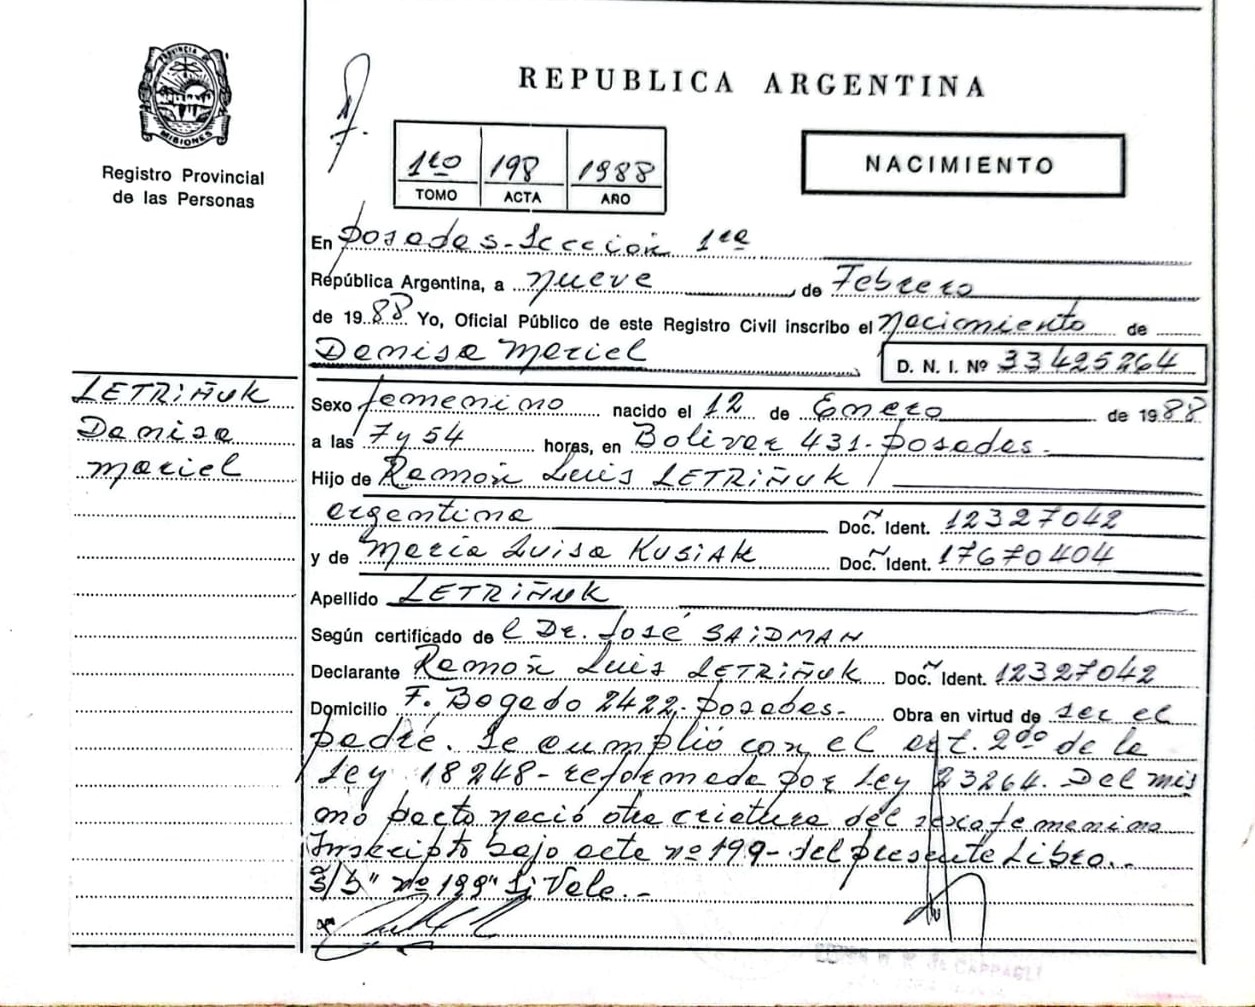 PROVINCIA DE
MISIONES
Registro Provincial
de las Personas
REPUBLICA ARGENTINA
1ro 198 1988
TOMO ACTA AÑO
NACIMIENTO
En Posadas-Sección 1ra
República Argentina, a nueve de Febrero
de 1988 Yo, Oficial Público de este Registro Civil inscribo el nacimiento de
Denisa Mariel
D. N. I. Nº 33425264
LETRIÑUK
Denisa
Mariel
Sexo femenino nacido el 12 de Enero de 1988
a las 7 y 54 horas, en Bolivar 431-Posadas-
Hijo de Ramón Luis LETRIÑUK
argentina Doc. Ident. 12327042
y de María Luisa KUSIAK Doc. Ident. 17670404
Apellido LETRIÑUK
Según certificado del Dr. José SAIDMAN
Declarante Ramón Luis LETRIÑUK Doc. Ident. 12327042
Domicilio F. Bogado 2422-Posadas- Obra en virtud de ser el
padre. Se cumplió con el art. 2do de la
Ley 18248-reformada por Ley 23264. Del mis
mo parto nació otra criatura del sexo femenino
Inskripto bajo acta nº 199- del presente Libro.-
S/b" nº 199" Si Vale.-